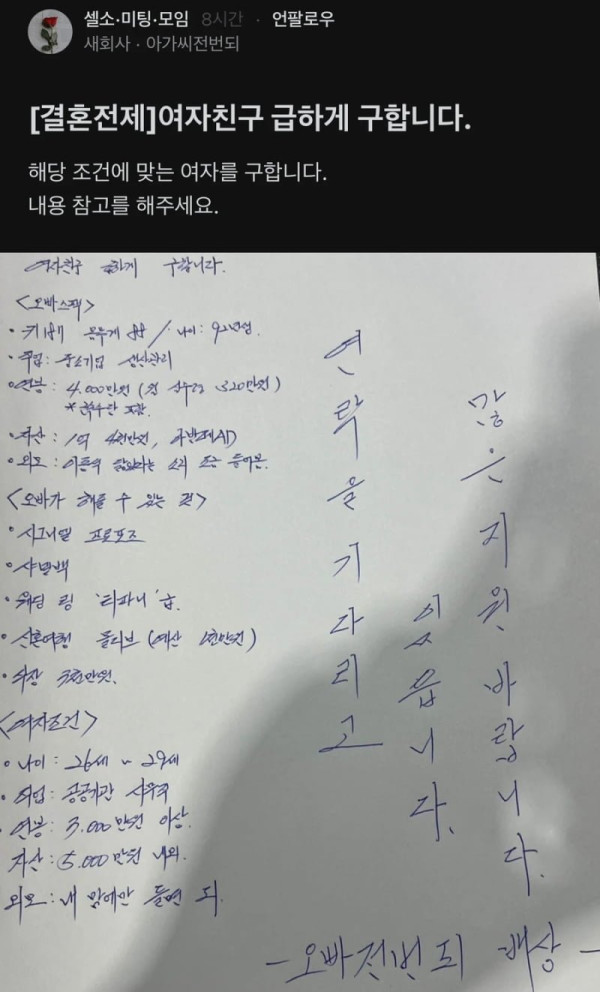 셀소·미팅·모임 8시간 · 언팔로우
새회사 · 아가씨전번되
[결혼전제]여자친구 급하게 구합니다.
해당 조건에 맞는 여자를 구합니다.
내용 참고를 해주세요.
여자친구 급하게 구합니다.
<오빠스펙>
나이: 92년생.
• 직업: 중소기업 생산관리
• 연봉: 4.000만원 (월 실수령 320만원)
포함.
• 자산: 1억
• 외모: 이동욱 닮았다는 소리 조금 들어봄.
<오빠가 해줄 수 있는 것>
• 시그니엘 프로포즈
• 샤넬백
• 웨딩 링 '티파니'급.
• 신혼여행 몰디브 (예산 천만원)
천만원.
<여자조건>
• 나이: 26세 ~ 29세
• 직업: 공공기관 사무직
• 연봉: 3.000만원 이상.
자산: 5.000만원 내외.
외모: 내 맘에만 들면 되.
많은 지원 바랍니다.
연락을 기다리고
있읍니다.
- 오빠전번되 배상 -